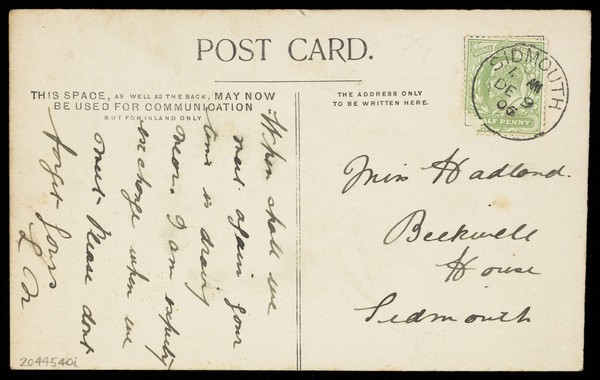 POST CARD.
THIS SPACE, AS WELL AS THE BACK, MAY NOW
BE USED FOR COMMUNICATION
BUT FOR INLAND ONLY
THE ADDRESS ONLY
TO BE WRITTEN HERE.
When shall we
meet again your
time is drawing
near. I am
exchange when we
meet Please dont
forget yours
SIDMOUTH
AM
DE 9
05
HALF PENNY
Miss Hadland.
Beckwell
House
Sidmouth
2044540i